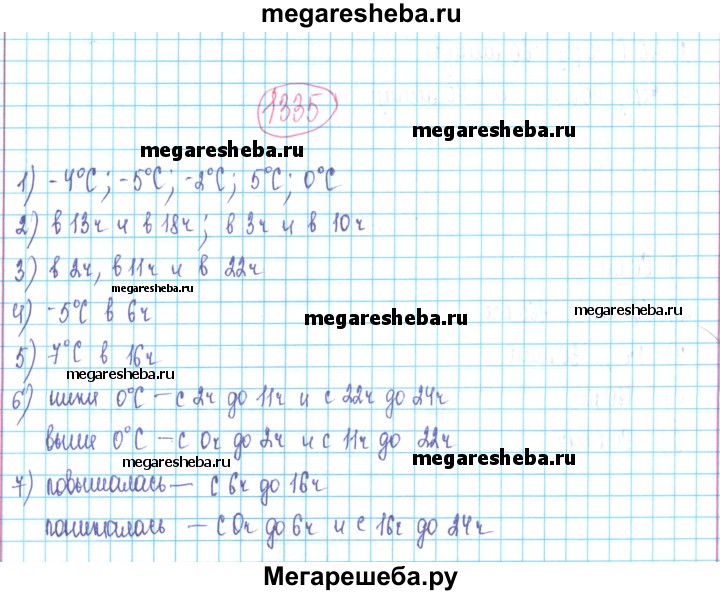 megaresheba.ru
1335
megaresheba.ru
megaresheba.ru
1) -4°C; -5°C; -2°C; 5°C; 0°C
2) в 13ч и в 18ч; в 3ч и в 10ч
3) в 2ч, в 11ч и в 22ч
megaresheba.ru
4) -5°C в 6ч
megaresheba.ru
megaresheba.ru
5) 7°C в 16ч
megaresheba.ru
6) ниже 0°C — с 2ч до 11ч и с 22ч до 24ч
выше 0°C — с 0ч до 2ч и с 11ч до 22ч
megaresheba.ru
megaresheba.ru
7) повышалась — с 6ч до 16ч
понижалась — с 0ч до 6ч и с 16ч до 24ч
Мегарешеба.ру